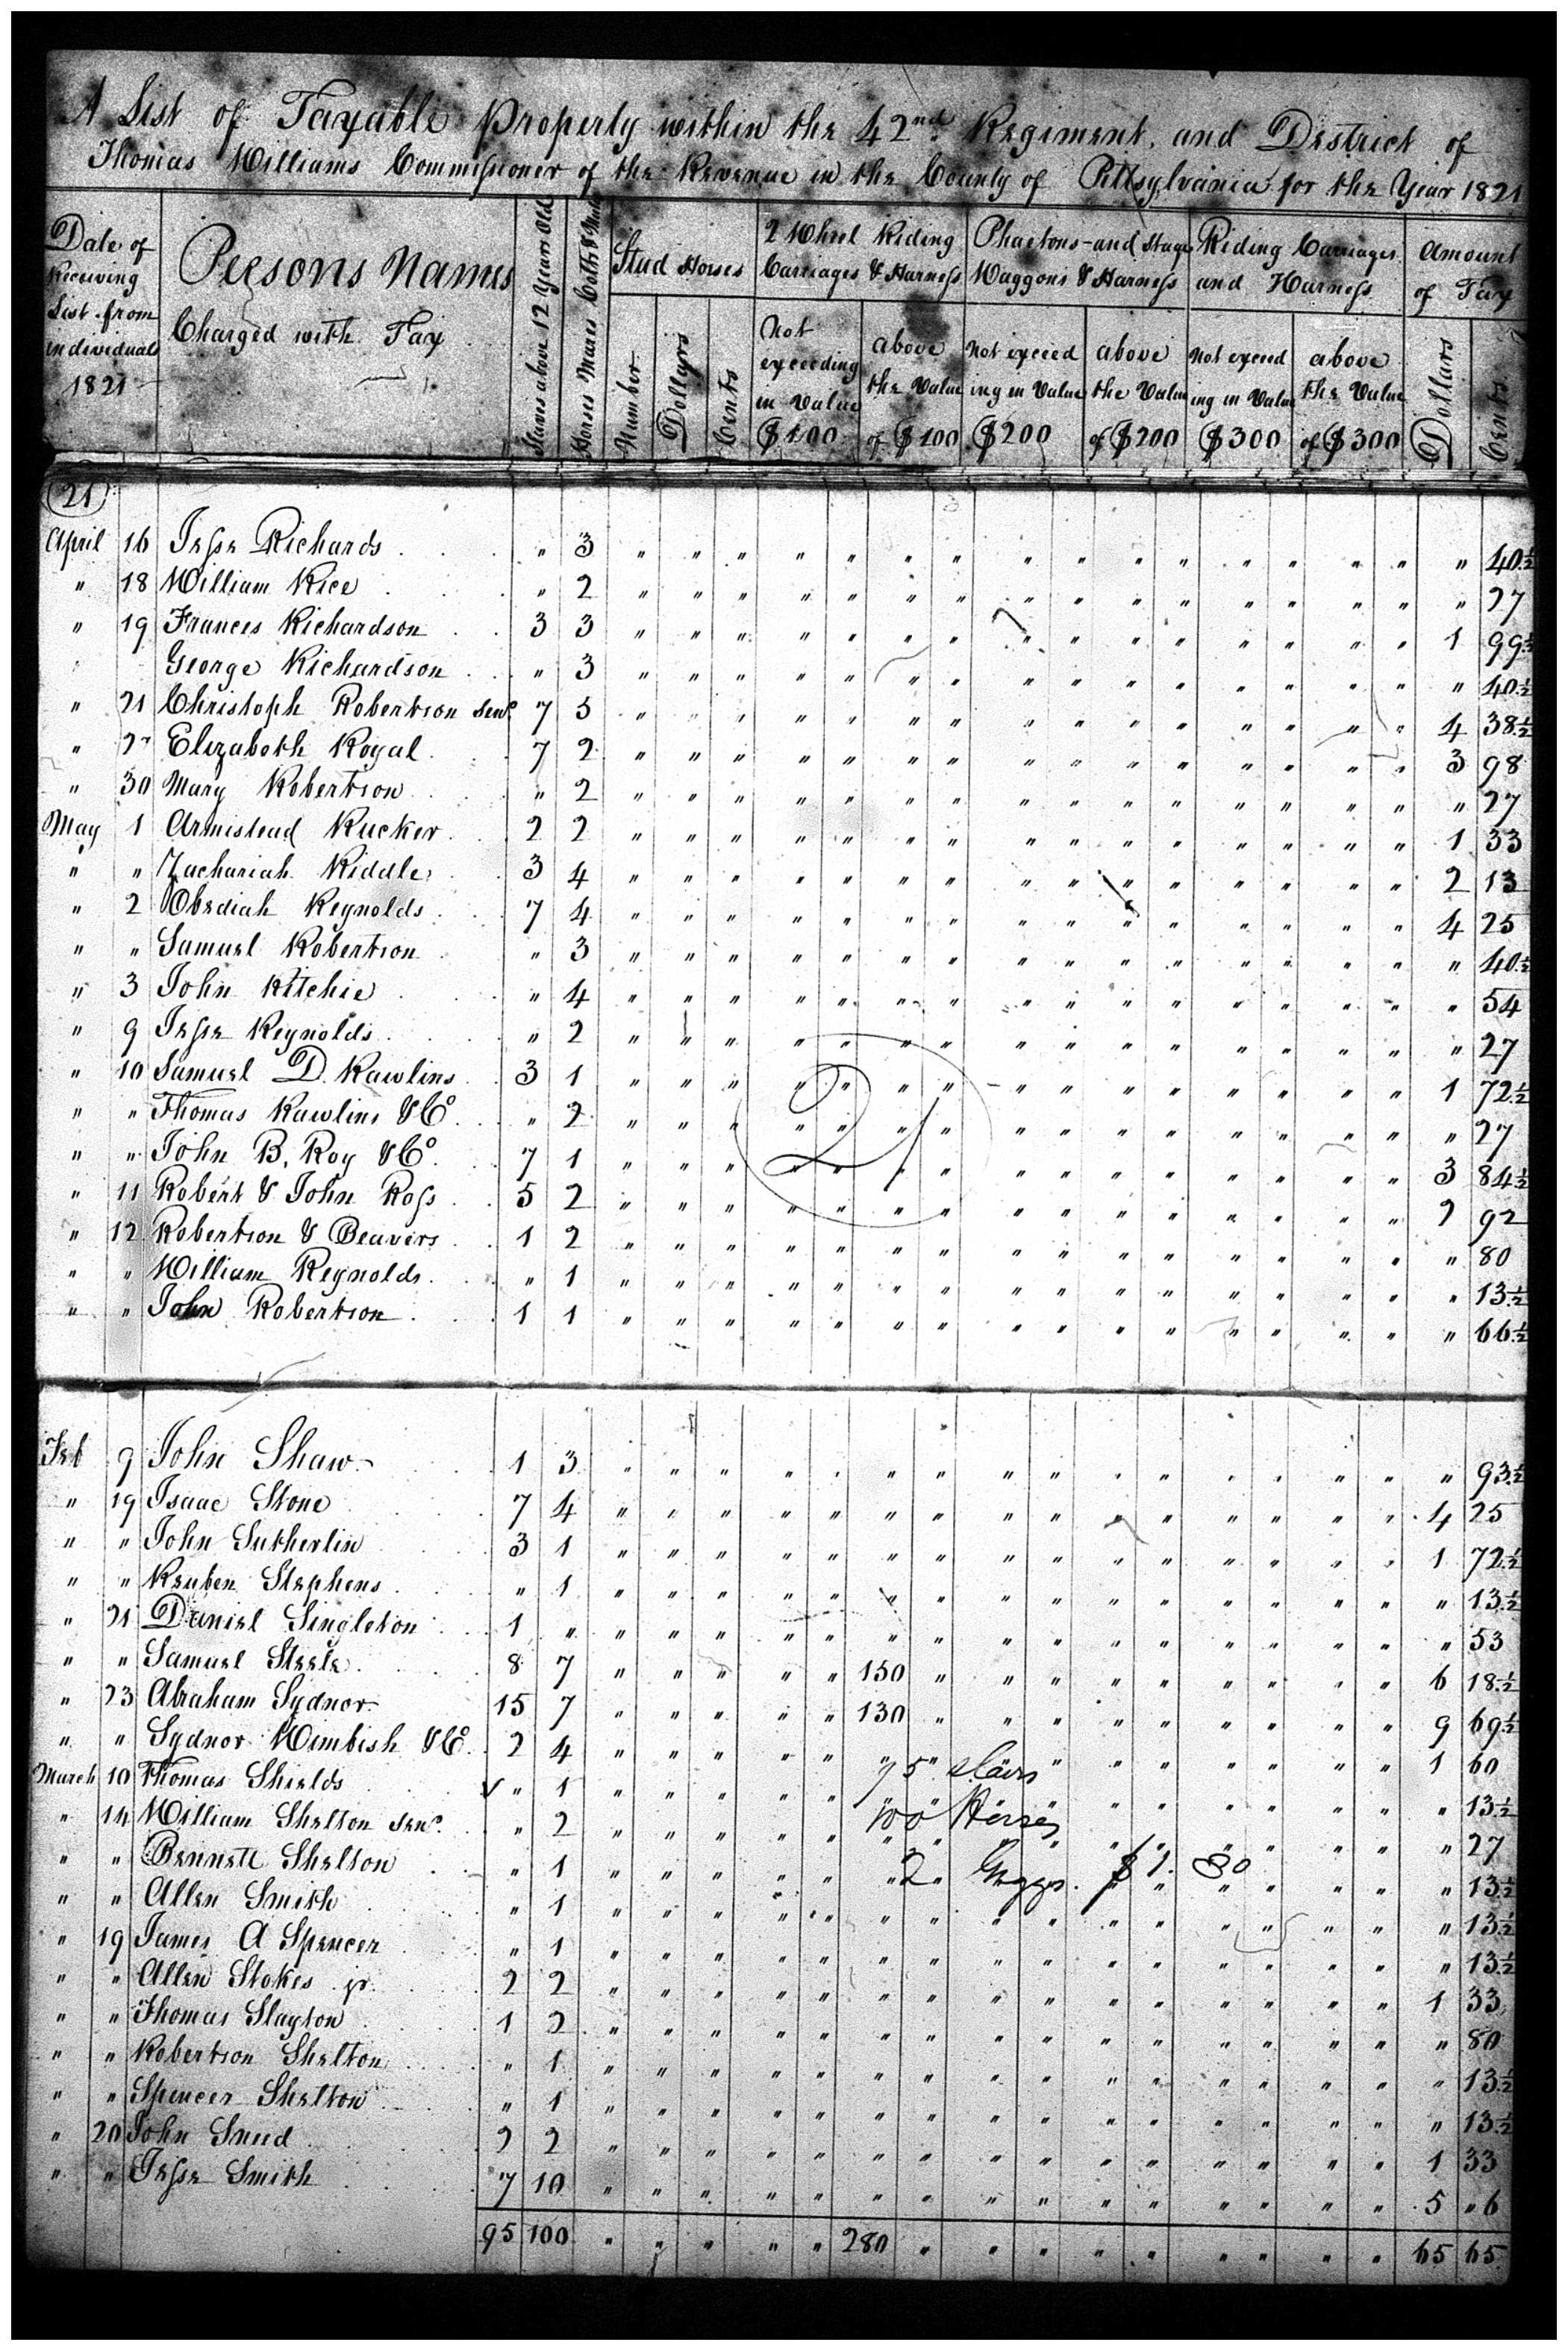 A List of Taxable Property within the 42nd Regiment, and District of
Thomas Williams Commissioner of the Revenue in the County of Pittsylvania for the Year 1821
Date of Receiving List from individuals 1821
Persons Names Charged with Tax
Slaves above 12 Years Old
Horses Mares Colts & Mules
Stud Horses
Number
Dollars
Cents
2 Wheel Riding Carriages & Harness
Not exceeding in Value $100
above the Value of $100
Phaetons and Stage Waggons & Harness
Not exceeding in Value $200
above the Value of $200
Riding Carriages and Harness
Not exceeding in Value $300
above the Value of $300
Amount of Tax
Dollars
Cents
21
April 16 Jesse Richards " 3 " 40½
" 18 William Rice " 2 " 27
" 19 Frances Richardson 3 3 1 99½
George Richardson " 3 " 40½
" 21 Christoph Robertson Senr 7 5 4 38½
" Elizabeth Royal 7 2 3 98
" 30 Mary Robertson " 2 " 27
May 1 Armistead Rucker 2 2 1 33
" " Zachariah Riddle 3 4 2 13
" 2 Obediah Reynolds 7 4 4 25
" " Samuel Robertson " 3 " 40½
" 3 John Ritchie " 4 " 54
" 9 Jesse Reynolds " 2 " 27
" 10 Samuel D. Rawlins 3 1 1 72½
" " Thomas Rawlins & Co " 2 " 27
" " John B. Roy & Co 7 1 3 84½
" 11 Robert & John Ross 5 2 2 92
" 12 Robertson & Beavers 1 2 " 80
" " William Reynolds " 1 " 13½
" " John Robertson 1 1 " 66½
21
Feb 9 John Shaw 1 3 " 93½
" 19 Isaac Stone 7 4 4 25
" " John Sutherlin 3 1 1 72½
" " Reuben Stephens " 1 " 13½
" 21 Daniel Singleton 1 " " 53
" " Samuel Steele 8 7 150 6 18½
" 23 Abraham Sydnor 15 7 130 9 69½
" " Sydnor Wimbish & Co 2 4 1 60
95 Slaves
March 10 Thomas Shields " 1 " 13½
100 Horses
" 14 William Shelton Senr " 2 " 27
2 Giggs. $1. 80
" " Bennett Shelton " 1 " 13½
" " Allen Smith " 1 " 13½
" 19 James A Spencer " 1 " 13½
" " Allen Stokes jr. 2 2 1 33
" " Thomas Slayton 1 2 " 80
" " Robertson Shelton " 1 " 13½
" " Spencer Shelton " 1 " 13½
" 20 John Sneed 2 2 1 33
" " Jesse Smith 7 10 5 "6
95 100 280 65 65